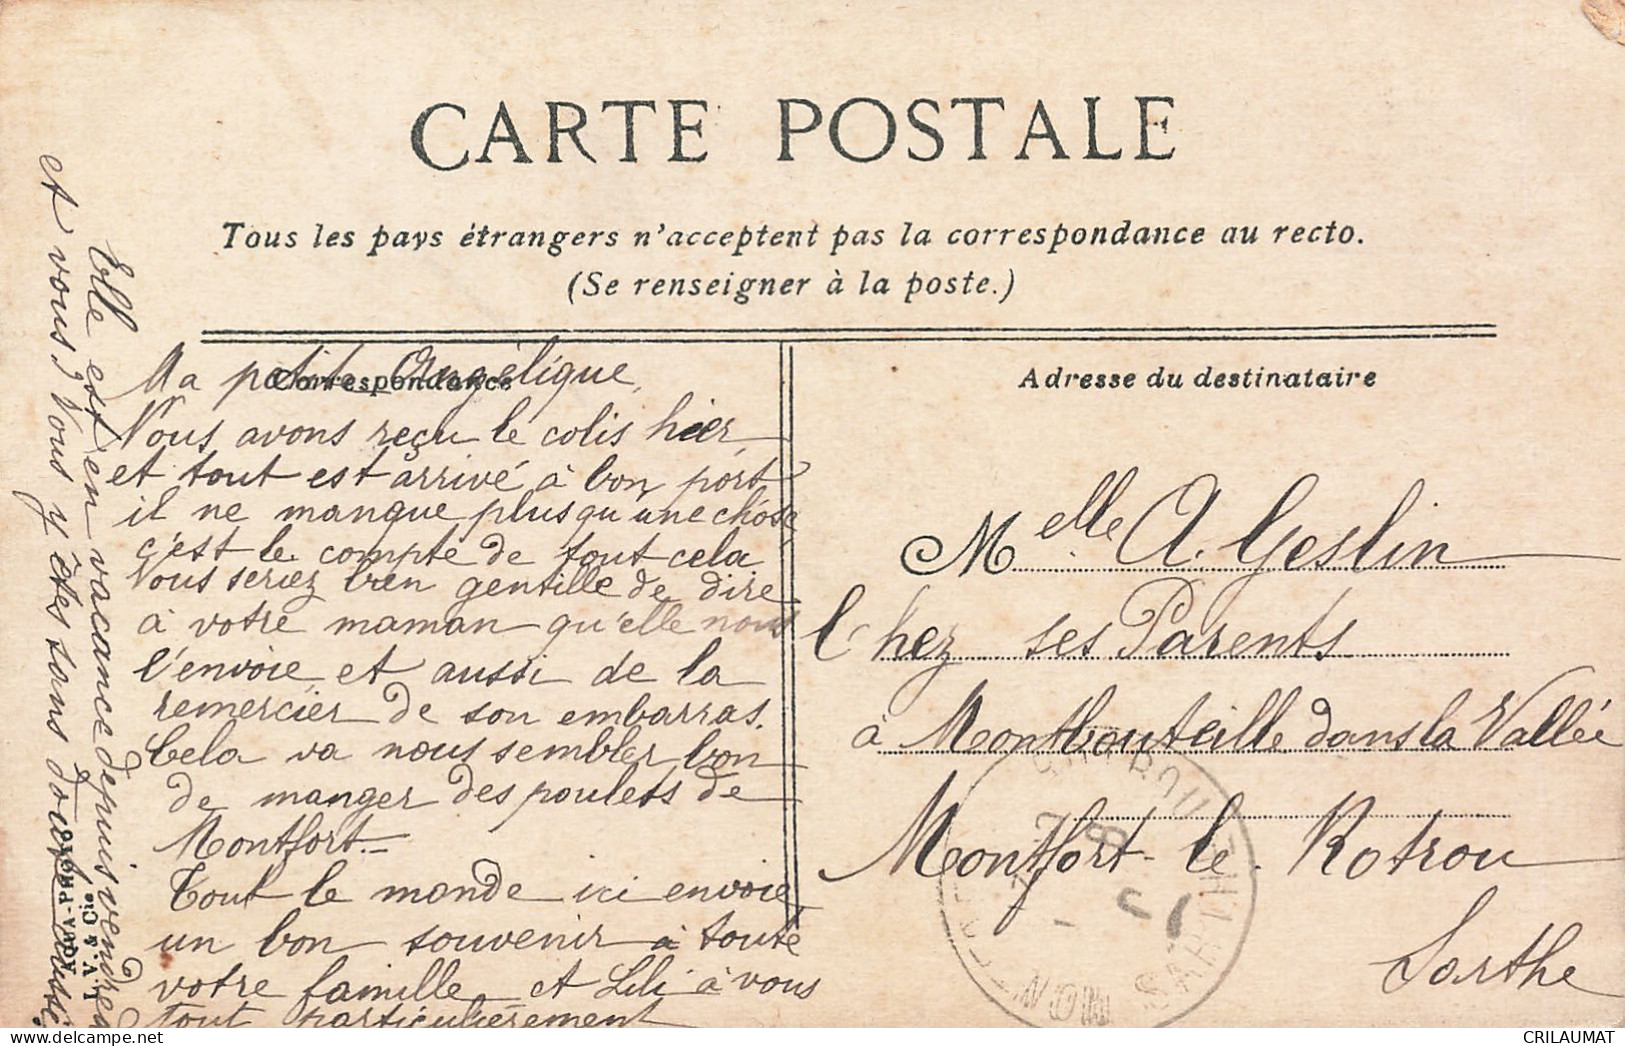 CARTE POSTALE
Tous les pays étrangers n'acceptent pas la correspondance au recto.
(Se renseigner à la poste.)
Correspondance
Ma petite Angélique,
Nous avons reçu le colis hier
et tout est arrivé à bon port
il ne manque plus qu'une chose
c'est le compte de tout cela
Vous seriez bien gentille de dire
à votre maman qu'elle nous
l'envoie et aussi de la
remercier de son embarras.
Cela va nous sembler bon
de manger des poulets de
Montfort.
Tout le monde ici envoie
un bon souvenir à toute
votre famille et Lili à vous
tout particulièrement
Elle est en vacance depuis vendredi
et vous? Vous y êtes sans doute aussi.
V. & Cie
AQUA-PHOTO
Adresse du destinataire
Melle A. Geslin
Chez ses Parents
à Montbouteille dans la Vallée
Montfort-le-Rotrou
Sarthe
MONTFORT
SARTHE
CRILAUMAT